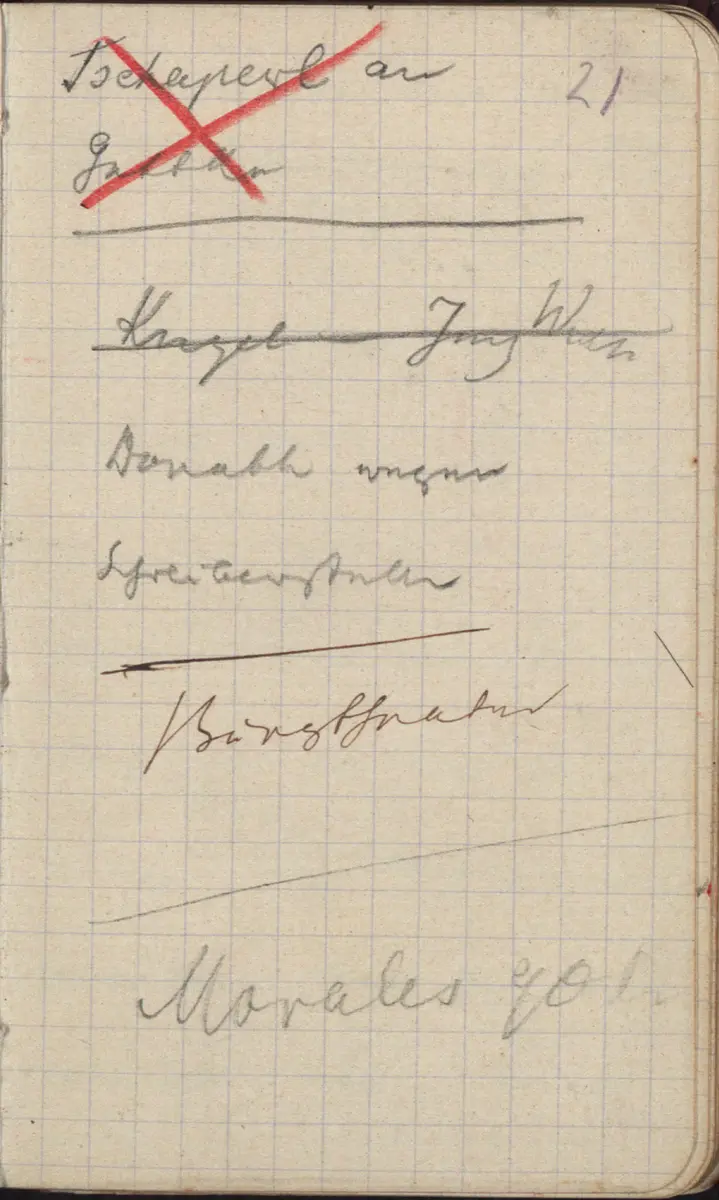 Tschaperl an 21
Kragel – Jung Wien
Donath wegen
Schreiberstelle
Burgtheater
Morales 90